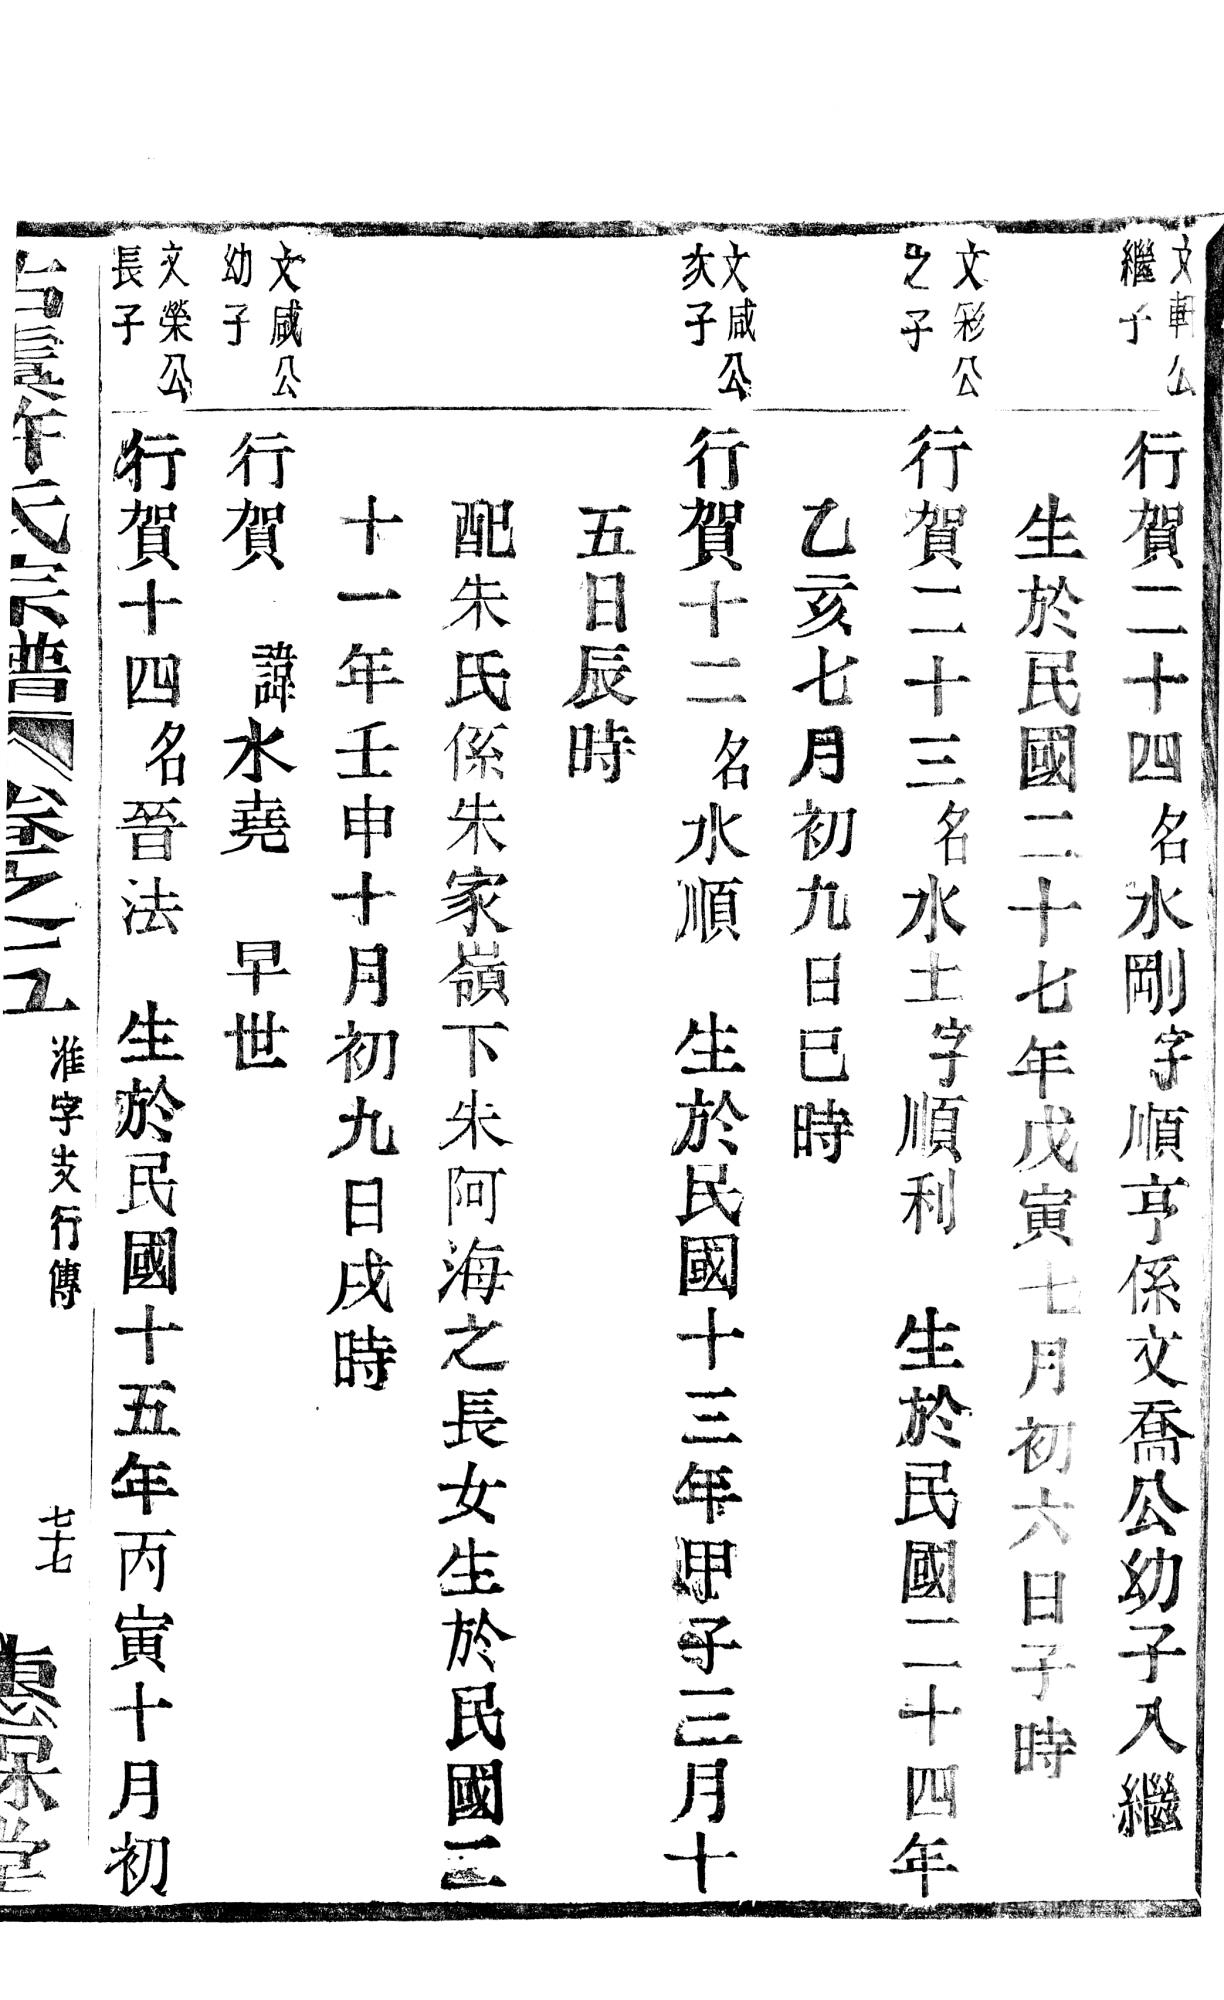 文軒公
繼子
行賀二十四名水剛字順亨係文喬公幼子入繼
生於民國二十七年戊寅七月初六日子時
文彩公
之子
行賀二十三名水土字順利 生於民國二十四年
乙亥七月初九日巳時
文咸公
次子
行賀十二名水順 生於民國十三年甲子三月十
五日辰時
配朱氏係朱家嶺下朱阿海之長女生於民國二
十一年壬申十月初九日戌時
文咸公
幼子
行賀 諱水堯 早世
文榮公
長子
行賀十四名晉法 生於民國十五年丙寅十月初
古虞許氏宗譜 卷之二
淮字支行傳
七十七
惠保堂